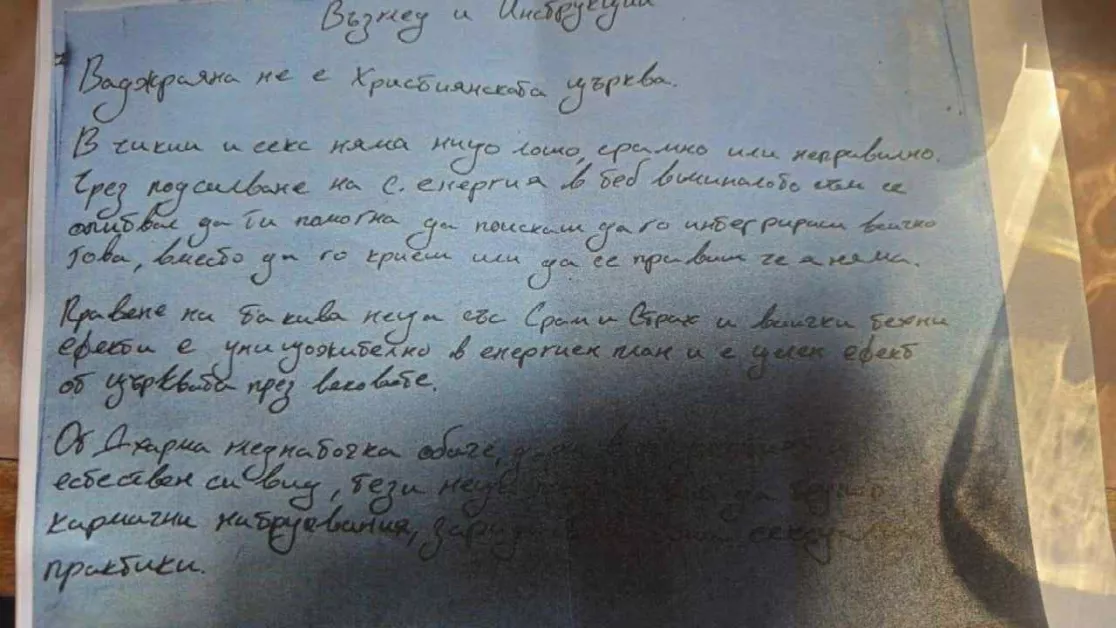 Възглед и Инструкции
Ваджраяна не е Християнската църква.
В чикии и секс няма нищо лошо, срамно или неправилно.
Чрез подсилване на с. енергия в теб в миналото съм се
опитвал да ти помогна да поискаш да го интегрираш всичко
това, вместо да го криеш или да се правиш че я няма.
Правене на такива неща със Срам и Страх и всички техни
ефекти е унищожително в енергиен план и е целен ефект
от църквата през вековете.
От Дхарма гледна точка обаче,
естествен си вид, тези неща да трупат
кармични натрупвания,
практики.